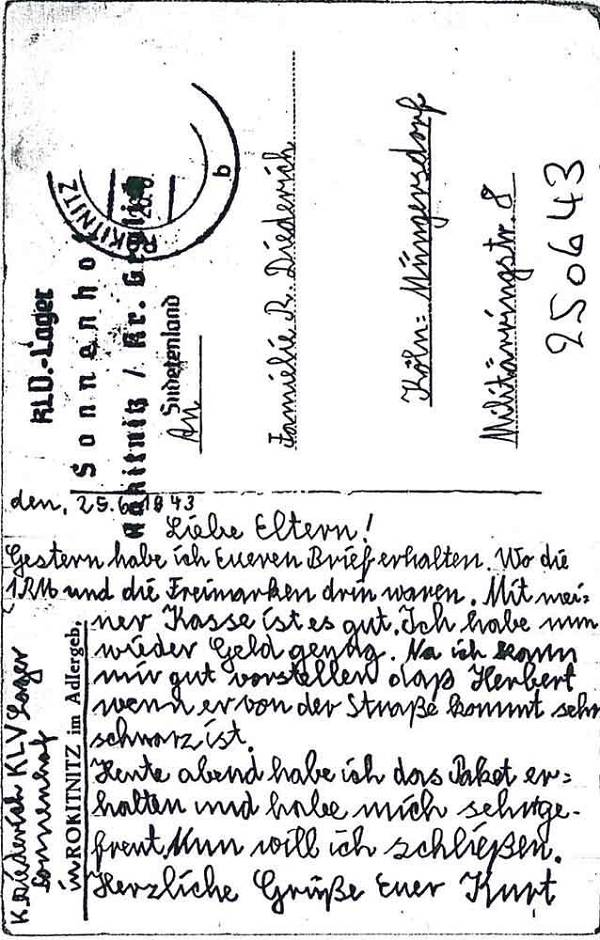 KLV.-Lager
Sonnenhof
Rokitnitz / Kr.
Sudetenland
ROKITNITZ
b
An
Familie R. Diederich
Köln=Müngersdorf
Militärringstr. 8
250643
den, 25.6.1943
Liebe Eltern!
Gestern habe ich Eueren Brief erhalten. Wo die
1 RM und die Freimarken drin waren. Mit mei=
ner Kasse ist es gut. Ich habe nun
wieder Geld genug. Na ich kann
mir gut vorstellen daß Herbert
wenn er von der Straße kommt sehr
schwarz ist.
Heute abend habe ich das Paket er=
halten und habe mich sehr ge-
freut. Nun will ich schließen.
Herzliche Grüße Euer Kurt
K Diederich KLV Lager
Sonnenhof
in ROKITNITZ im Adlergeb.